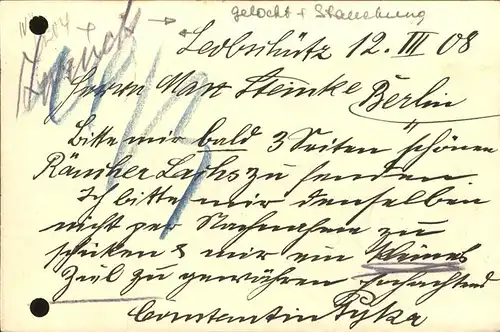 gelocht + Stauchung
Leobschütz 12. III 08
Herrn Max Steinke Berlin
Bitte mir bald 3 Seiten schönen
Räucher Lachs zu senden.
Ich bitte mir denselben
nicht per Nachnahme zu
schicken & mir ein kleines
Ziel zu gewähren Hochachtend
Constantin Pyka